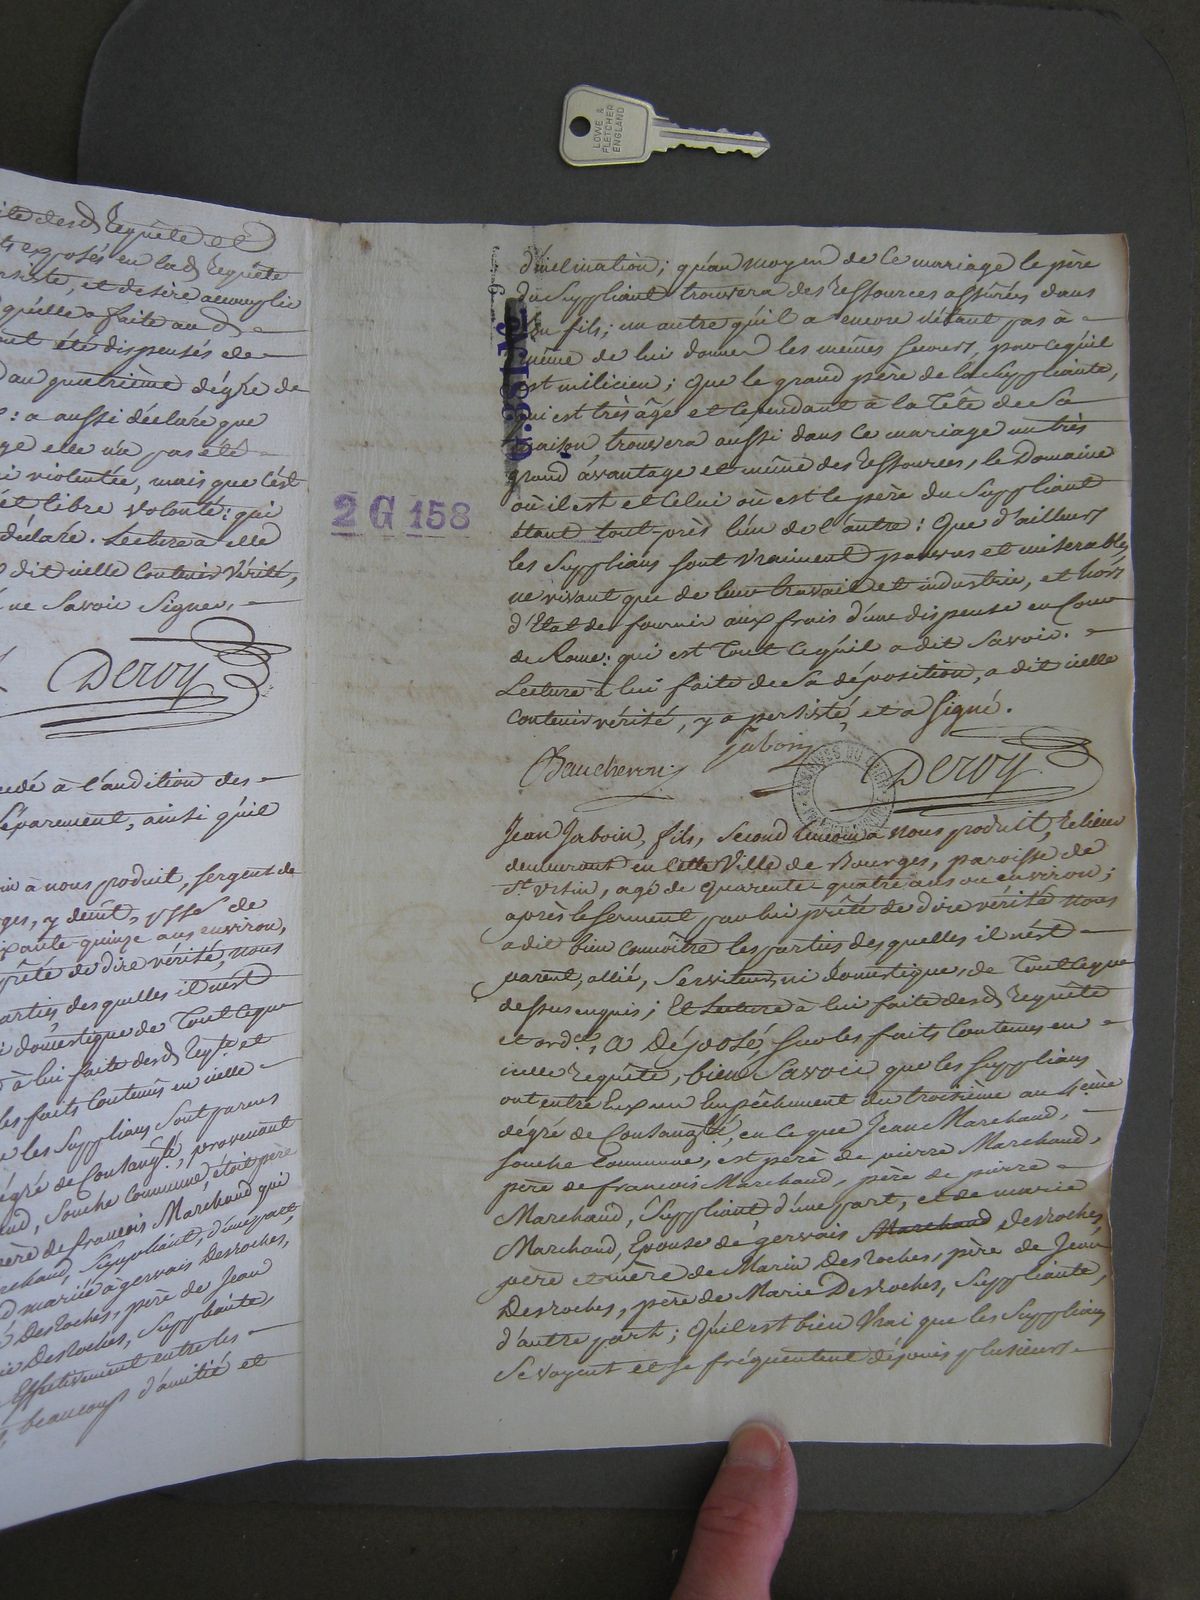 LOWE &
FLETCHER
ENGLAND
Requête et
exposés en lad. Requête
et desire accomplir
qu'elle a faite aud.
été dispensés de
au quatrième dégré de
: a aussi déclaré que
elle n'a pas été
violentée, mais que c'est
et libre volonté: qui
déclaré. Lecture à elle
dit icelle contenir vérité,
ne Savoir Signer.
Deroy
à l'audition des
Séparement, ainsi qu'il
à nous produit, sergent de
y demt. psse. de
quinze ans environ,
prêté de dire vérité, nous
parties desquelles il n'est
domestique de Tout ceque
à lui faite desd. Reqte. et
les faits Contenus en icelle
les Supplians Sont parens
dégré de Consangté. provenant
Souche Commune, étoit père
père de françois Marchand qui
Marchand, Suppliant, d'une part,
mariée à gervais Desroches,
Desroches, père de Jean
Desroches, Suppliante,
Effectivement entre les
beaucoup d'amitié et
2 G 158
d'inclination; qu'au moyen de Ce mariage le père
du Suppliant trouvera des Ressources assurées dans
son fils; un autre qu'il a encore n'étant pas à
même de lui donner les mêmes Secours, pour cequ'il
est milicien; Que le grand père de la Suppliante,
qui est très âgé et Cependant à la Tête de Sa
maison trouvera aussi dans Ce mariage un très
grand avantage et même des Ressources, le Domaine
où il est et Celui où est le père du Suppliant
étant tout-près l'un de l'autre: Que d'ailleurs
les Supplians sont vraiment pauvres et miserables,
ne vivant que de leur travail et industrie, et hors
d'Etat de fournir aux frais d'une dispense en Cour
de Rome: qui est Tout Cequ'il a dit Savoir.
Lecture à lui faite de Sa déposition, a dit icelle
contenir vérité, y a persisté, et a Signé.
Jaboin
Deroy
Jean Jaboin, fils, Second témoin à nous produit, Relieur
demeurant en Cette Ville de Bourges, paroisse de
St. Ursin, agé de quarente-quatre ans ou environ;
après le Serment par lui prêté de dire vérité nous
a dit bien connoître les parties desquelles il n'est
parent, allié, Serviteur, ni domestique, de Tout Ceque
dessus enquis; Et Lecture à lui faite desd. Requête
et ordce., A Déposé, Sur les faits Contenus en
icelle Requête, bien Savoir que les Supplians
ont entre Eux un Empêchement du troisième au 4eme
dégré de Consangté., en ce que Jean Marchand,
Souche Commune, est père de pierre Marchand,
père de françois Marchand, père de pierre
Marchand, Suppliant d'une part, et de marie
Marchand, Epouse de gervais Marchand Desroches,
père et mère de Marin Desroches, père de Jean
Desroches, père de Marie Desroches, Suppliante,
d'autre part; Qu'il est bien Vrai que les Supplians
Se voyent et Se fréquentent depuis plusieurs